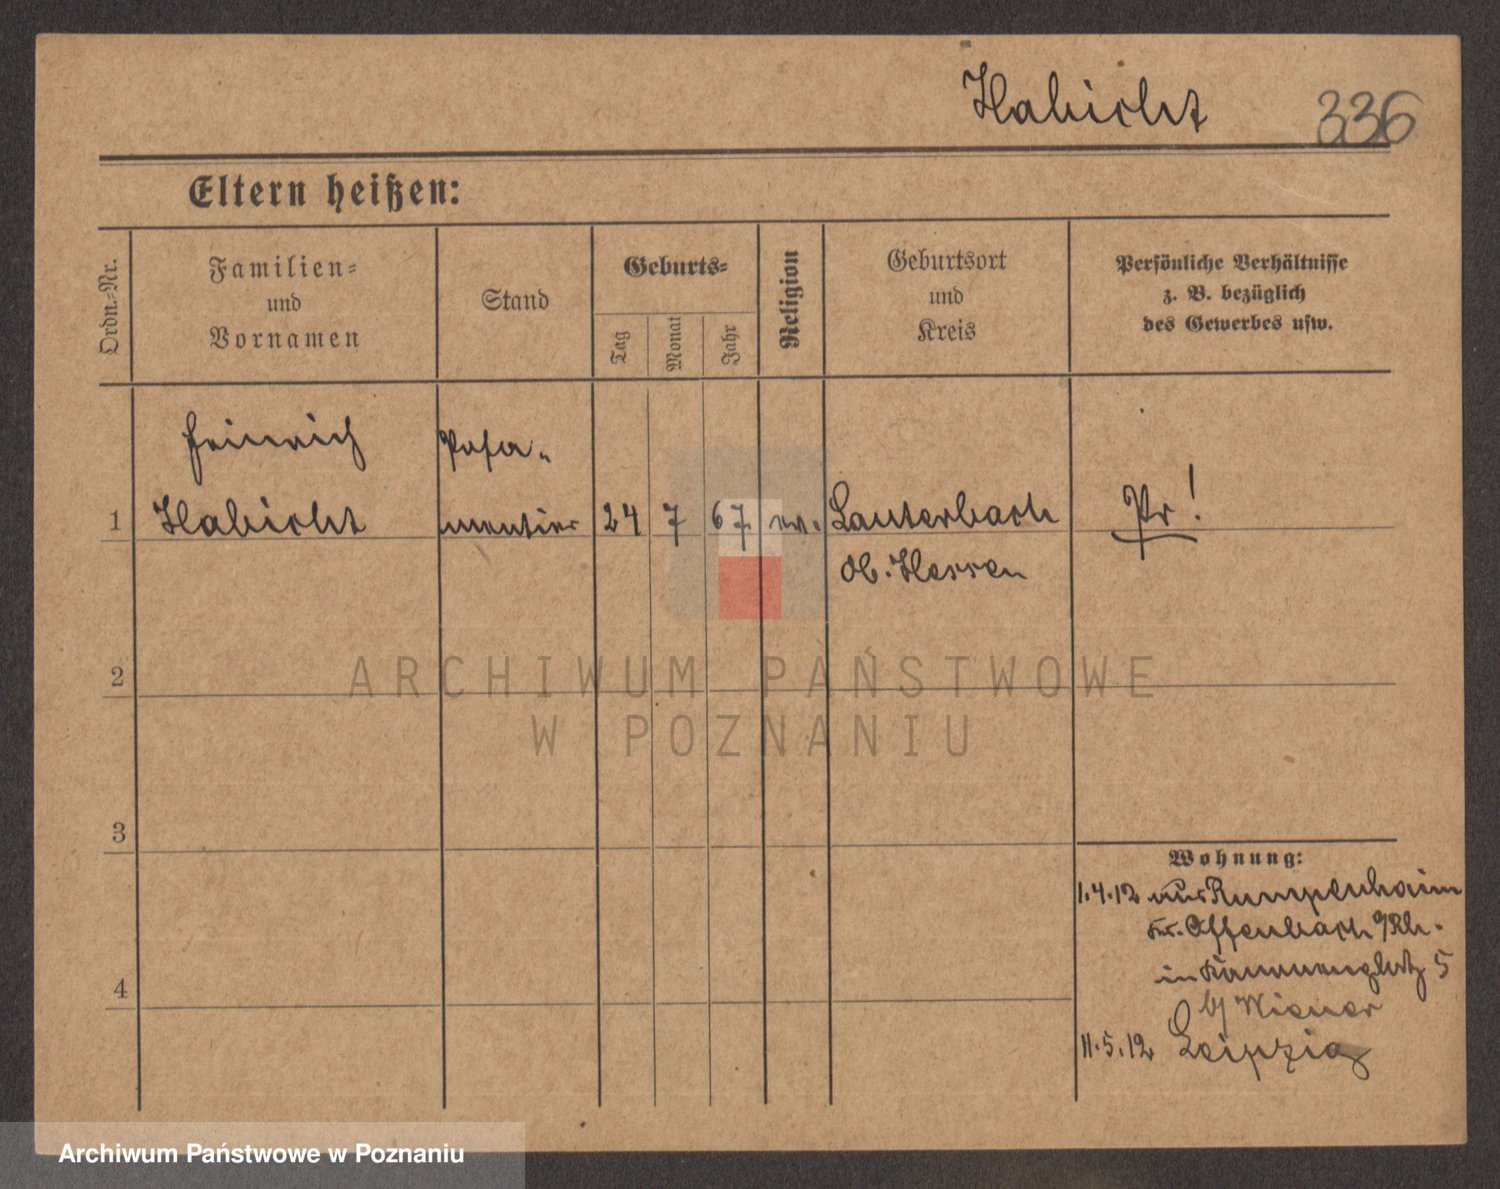 Habicht 336
Eltern heißen:
Ordn.-Nr.
Familien-
und
Vornamen
Stand
Geburts-
Tag
Monat
Jahr
Religion
Geburtsort
und
Kreis
Persönliche Verhältnisse
z. B. bezüglich
des Gewerbes usw.
Heinrich Posa-
1 Habicht mentier 24 7 67 ev. Lauterbach Pr!
Ob. Hessen
2
3
4
Wohnung:
1.4.12 aus Rumpenheim
Kr. Offenbach
in 5
b/ Wiener
11.5.12 Leipzig
ARCHIWUM PAŃSTWOWE
W POZNANIU
Archiwum Państwowe w Poznaniu